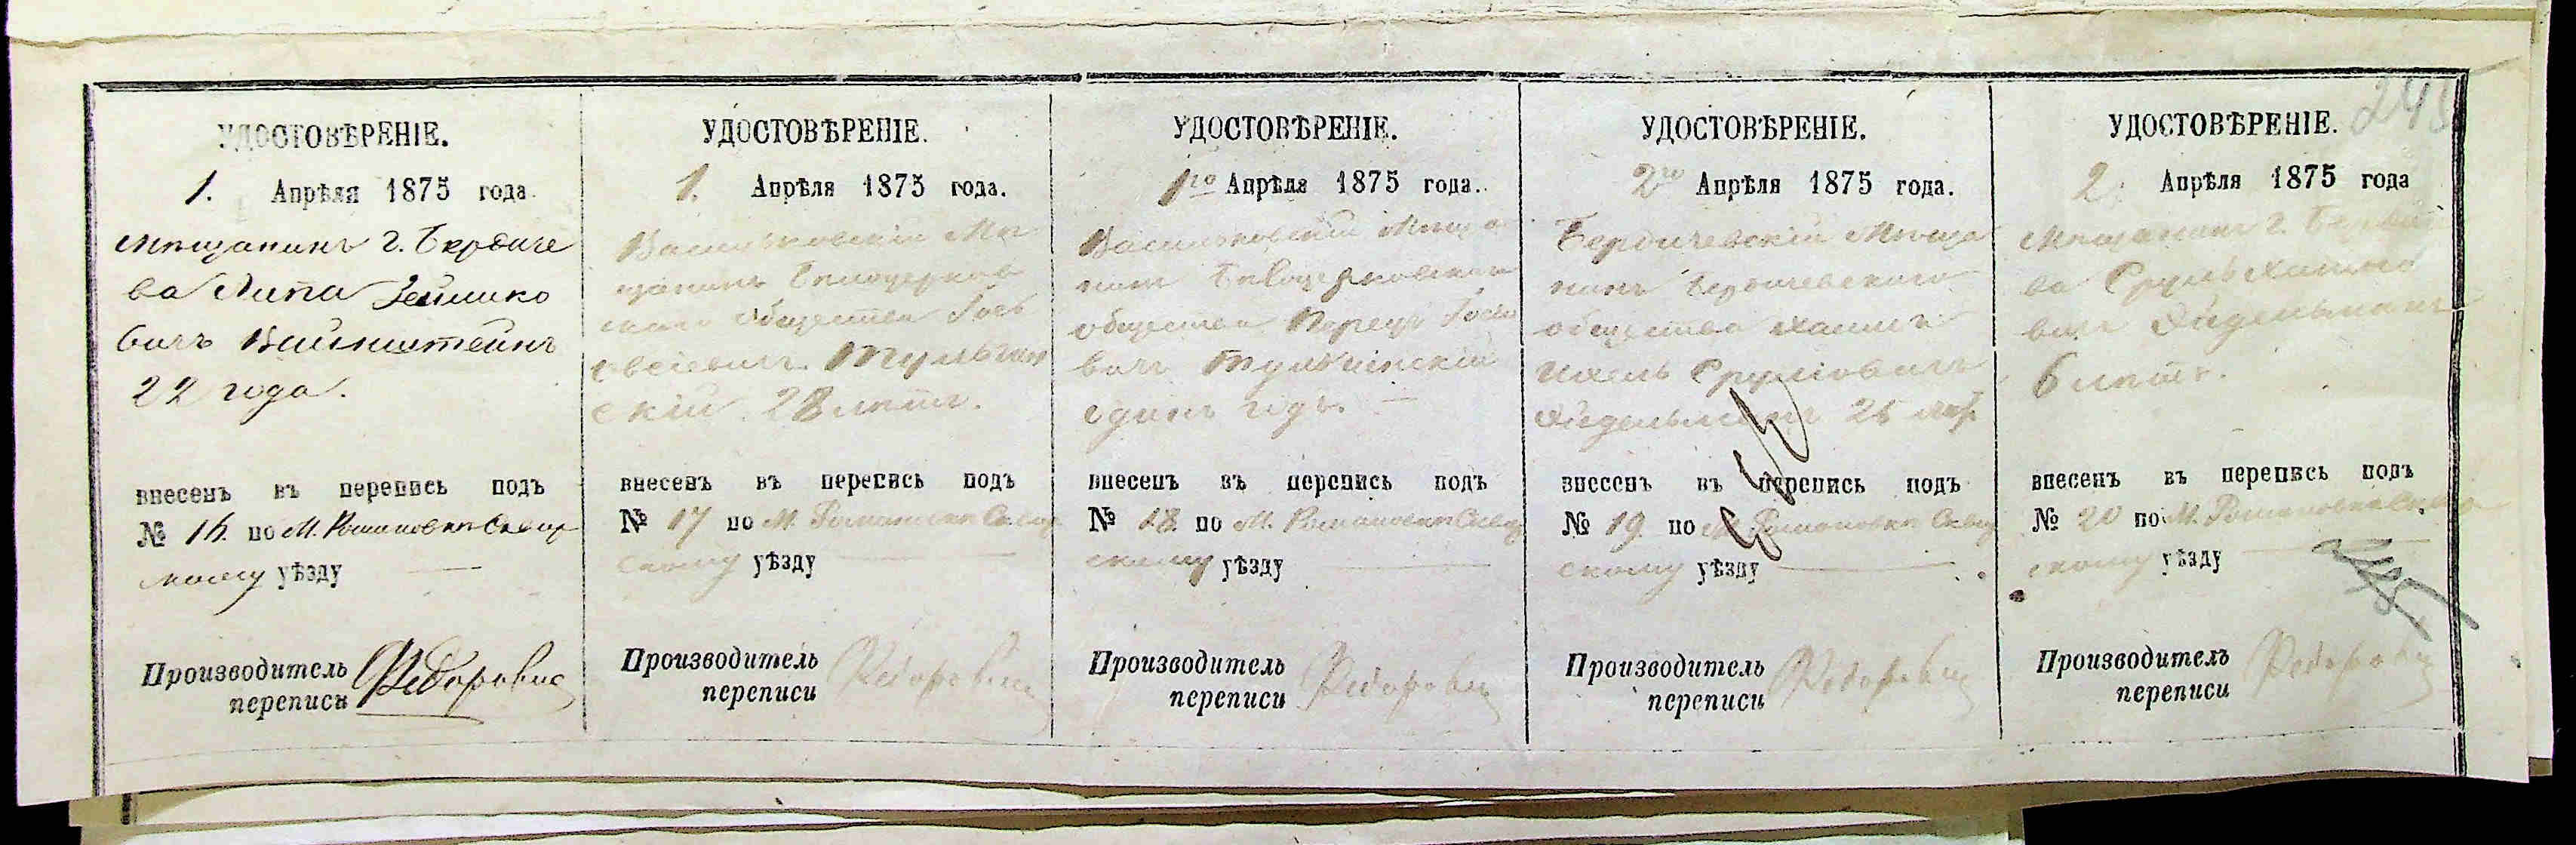 УДОСТОВѢРЕНІЕ.
1. Апрѣля 1875 года.
Мѣщанинъ г. Бердиче
ва Липа Зейлико
вичъ Вайнштейнъ
22 года.
внесенъ въ перепись подъ
№ 16. по М. Романовкѣ Сквир
скому уѣзду
Производитель
переписи Федорович
УДОСТОВѢРЕНІЕ.
1. Апрѣля 1875 года.
Васильковскій Мѣ
щанинъ Бѣлоцерков
скаго Общества Іось
Тульчин
скій. 28 лѣтъ.
внесенъ въ перепись подъ
№ 17 по М. Романовкѣ Сквир
скому уѣзду
Производитель
переписи Федорович
УДОСТОВѢРЕНІЕ.
1го Апрѣля 1875 года.
Васильковскій Мѣща
нинъ Бѣлоцерковскаго
общества Перецъ Іось
вичъ Тульчинскій
одинъ годъ.
внесенъ въ перепись подъ
№ 18. по М. Романовкѣ Сквир
скому уѣзду
Производитель
переписи Федорович
УДОСТОВѢРЕНІЕ.
2го Апрѣля 1875 года.
Бердичевскій Мѣща
нинъ Бердичевскаго
общества Хаимъ
Ихель Срулiовичъ
Эйдельманъ 26 лѣт.
внесенъ въ перепись подъ
№ 19. по М. Романовкѣ Сквир
скому уѣзду
Производитель
переписи Федорович
УДОСТОВѢРЕНІЕ.
2. Апрѣля 1875 года
Мѣщанинъ г. Бердиче
ва Сруль Хаимо
вичъ Эйдельманъ
6 лѣтъ.
внесенъ въ перепись подъ
№ 20 по М. Романовкѣ Сквир
скому уѣзду
Производитель
переписи Федорович